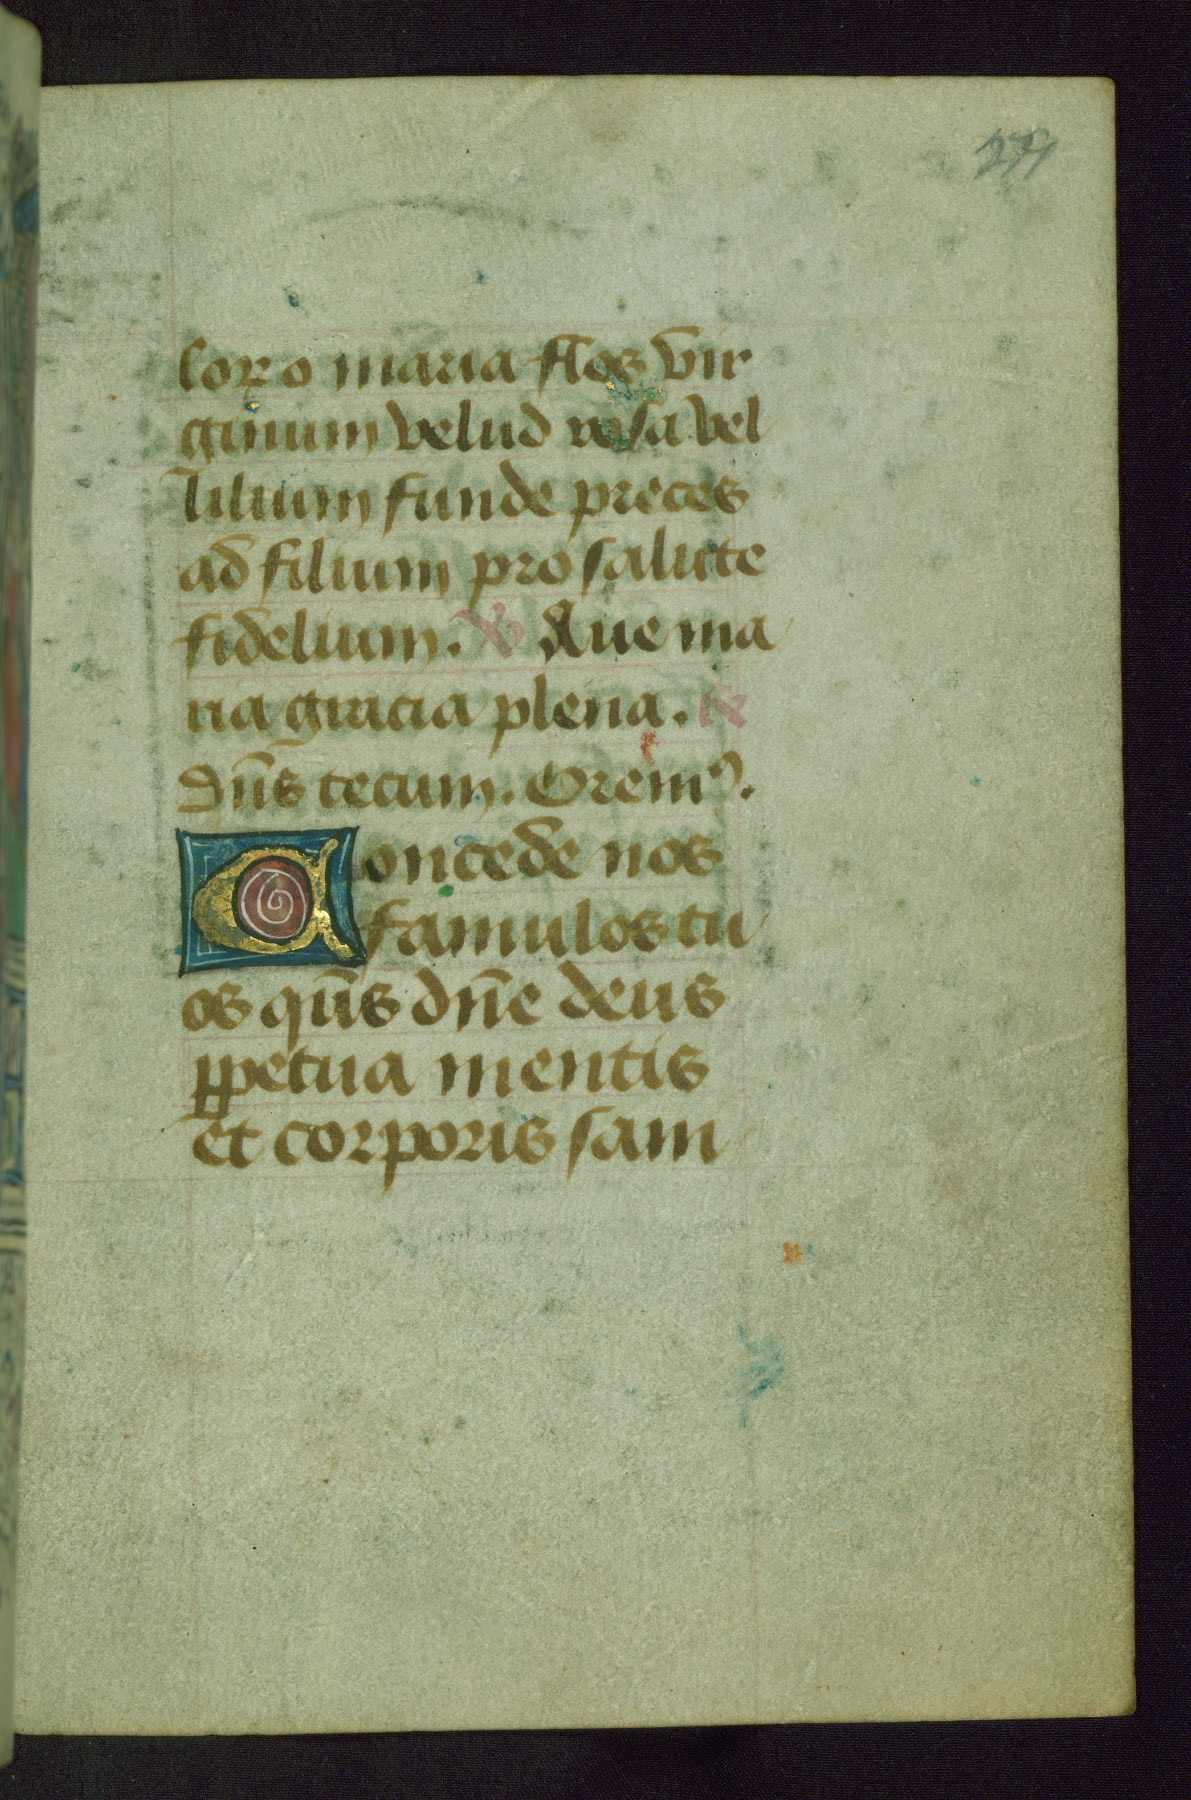 279
lor o maria flos vir
ginum velud rosa vel
lilium funde preces
ad filium pro salute
fidelium. V Aue ma
ria gracia plena. R
Dn̄s tecum. Oremꝰ.
Concede nos
famulos tu
os qūs dn̄e deus
ꝑpetua mentis
et corporis sani